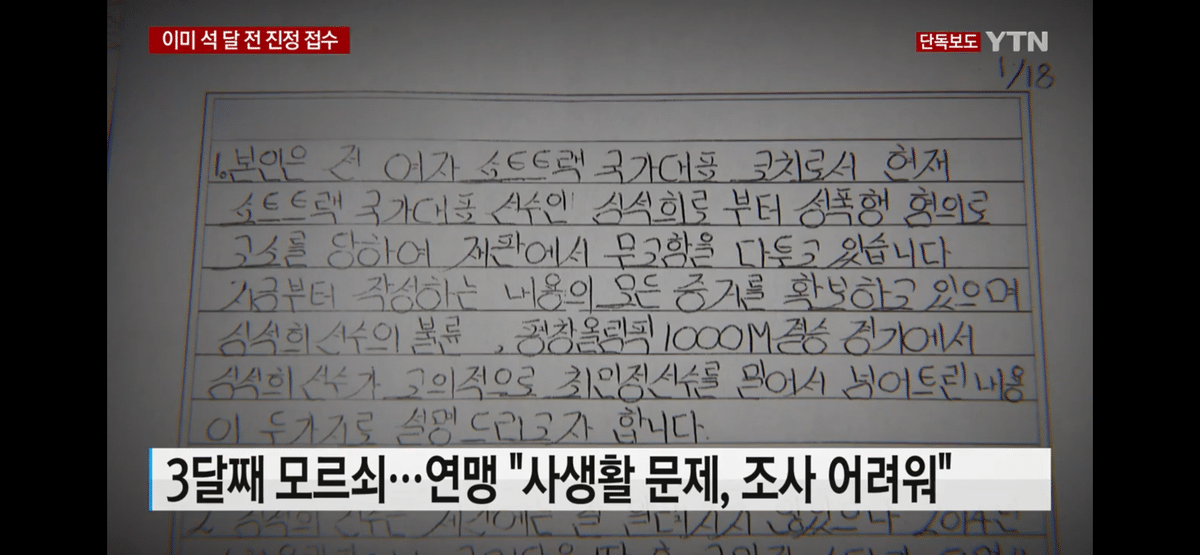 이미 석 달 전 진정 접수
단독보도 YTN
1/18
1. 본인은 전 여자 쇼트트랙 국가대표 코치로서 현재
쇼트트랙 국가대표 선수인 심석희로 부터 성폭행 혐의로
고소를 당하여 재판에서 무고함을 다투고 있습니다
지금부터 작성하는 내용의 모든 증거를 확보하고 있으며
심석희 선수의 불륜, 평창올림픽 1000M 결승 경기에서
심석희 선수가 고의적으로 최민정선수를 밀어서 넘어트린 내용
이 두가지로 설명 드리고자 합니다.
3달째 모르쇠…연맹 "사생활 문제, 조사 어려워"